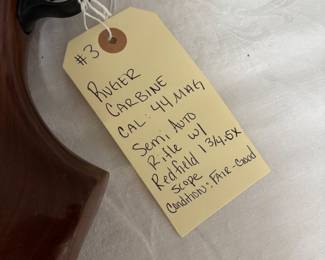 #3
RUGER
CARBINE
CAL: 44 MAG
SEMI AUTO
Rifle w/
Redfield 1 3/4-5X
Scope
Condition: FAIR-Good